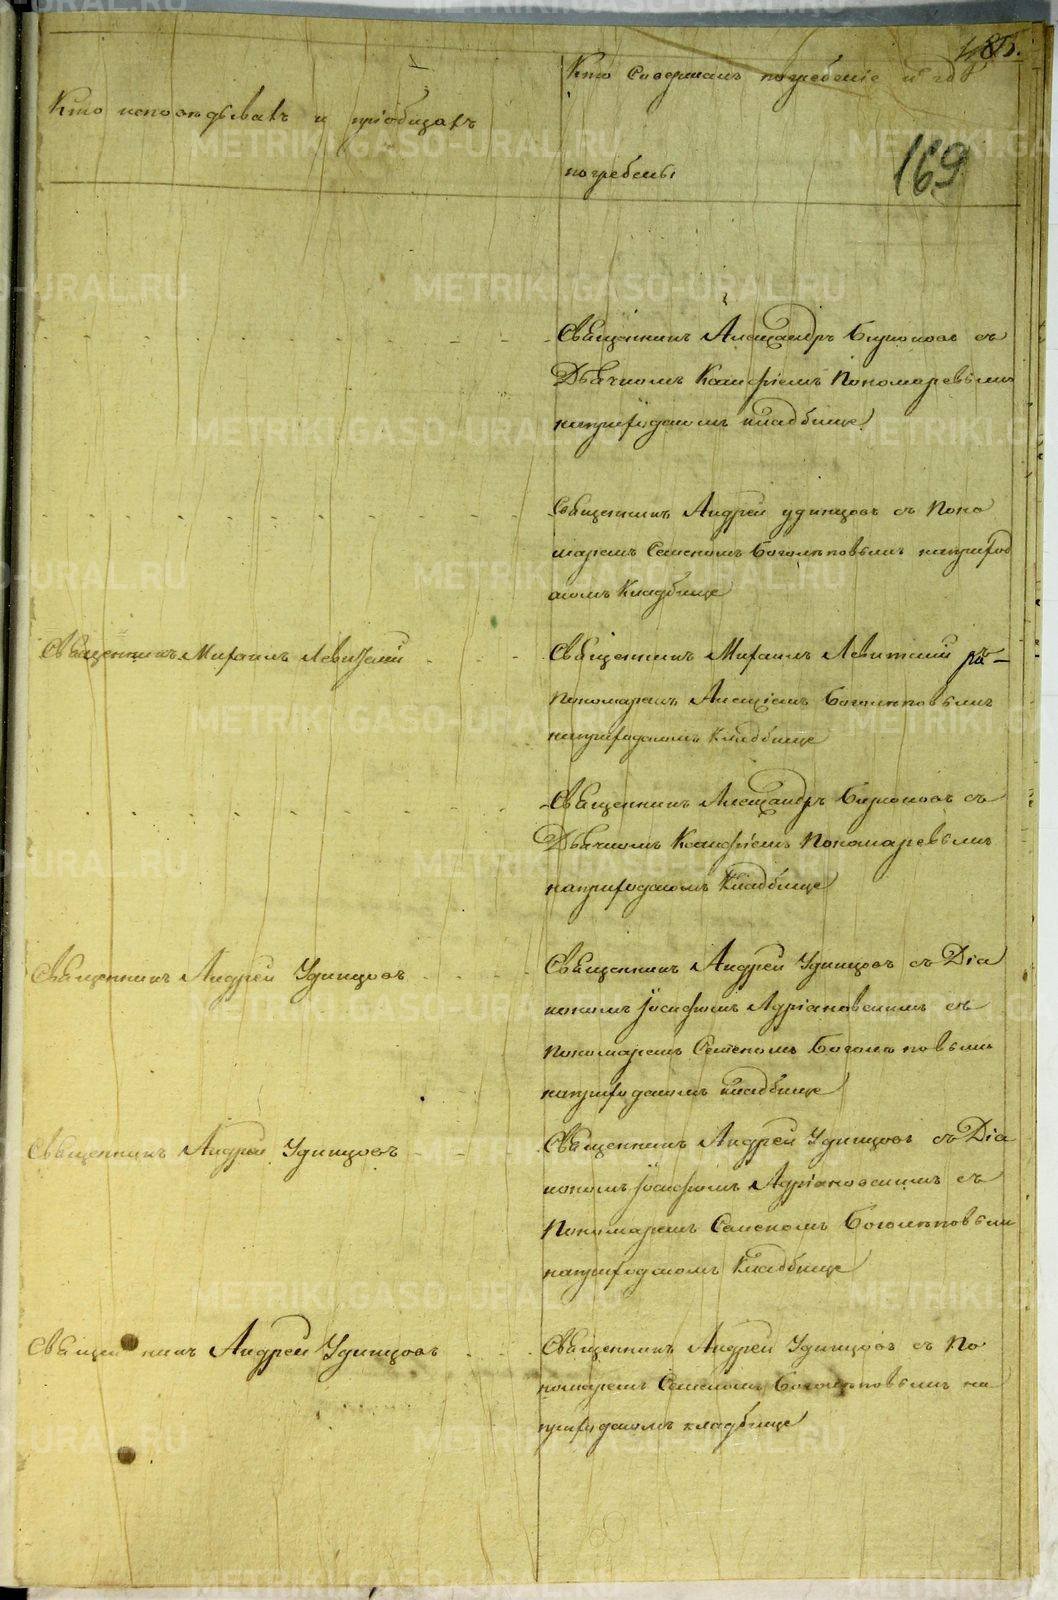 169
Кто исповѣдывалъ и пріобщалъ
Кто совершалъ погребеніе и гдѣ
погребены
Священникъ Александръ Бирюковъ съ
Дьячкомъ Пономаревымъ
на приходскомъ кладбище
Священникъ Андрей Удинцовъ съ Поно
маремъ Семеномъ Боголѣповымъ на приход
скомъ Кладбище
Священникъ Михаилъ Левитскій
Священникъ Михаилъ Левитскій съ
пономаремъ Алексіемъ Боголѣповымъ
на приходскомъ Кладбище
Священникъ Александръ Бирюковъ съ
Дьячкомъ Пономаревымъ
на приходскомъ Кладбище
Священникъ Андрей Удинцовъ
Священникъ Андрей Удинцовъ съ Діа
кономъ Іосифомъ Адріановскимъ съ
Пономаремъ Семеномъ Боголѣповымъ
на приходскомъ кладбище
Священникъ Андрей Удинцовъ
Священникъ Андрей Удинцовъ съ Діа
кономъ Іосифомъ Адріановскимъ съ
Пономаремъ Семеномъ Боголѣповымъ
на приходскомъ Кладбище
Священникъ Андрей Удинцовъ
Священникъ Андрей Удинцовъ съ По
номаремъ Семеномъ Боголѣповымъ на
приходскомъ кладбище
METRIKI.GASO-URAL.RU